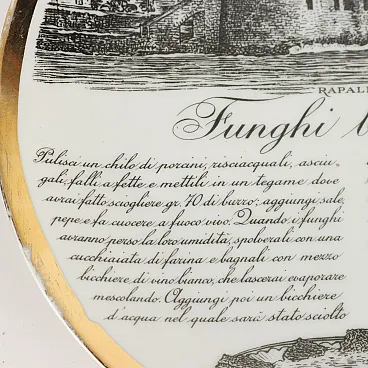 RAPALL
Funghi
Pulisci un chilo di porcini, risciacquali, asciu=
gali, falli a fette e mettili in un tegame dove
avrai fatto sciogliere gr. 40 di burro; aggiungi sale,
pepe e fa cuocere a fuoco vivo. Quando i funghi
avranno perso la loro umidità, spolverali con una
cucchiaiata di farina e bagnali con mezzo
bicchiere di vino bianco, che lascerai evaporare
mescolando. Aggiungi poi un bicchiere
d'acqua nel quale sarà stato sciolto